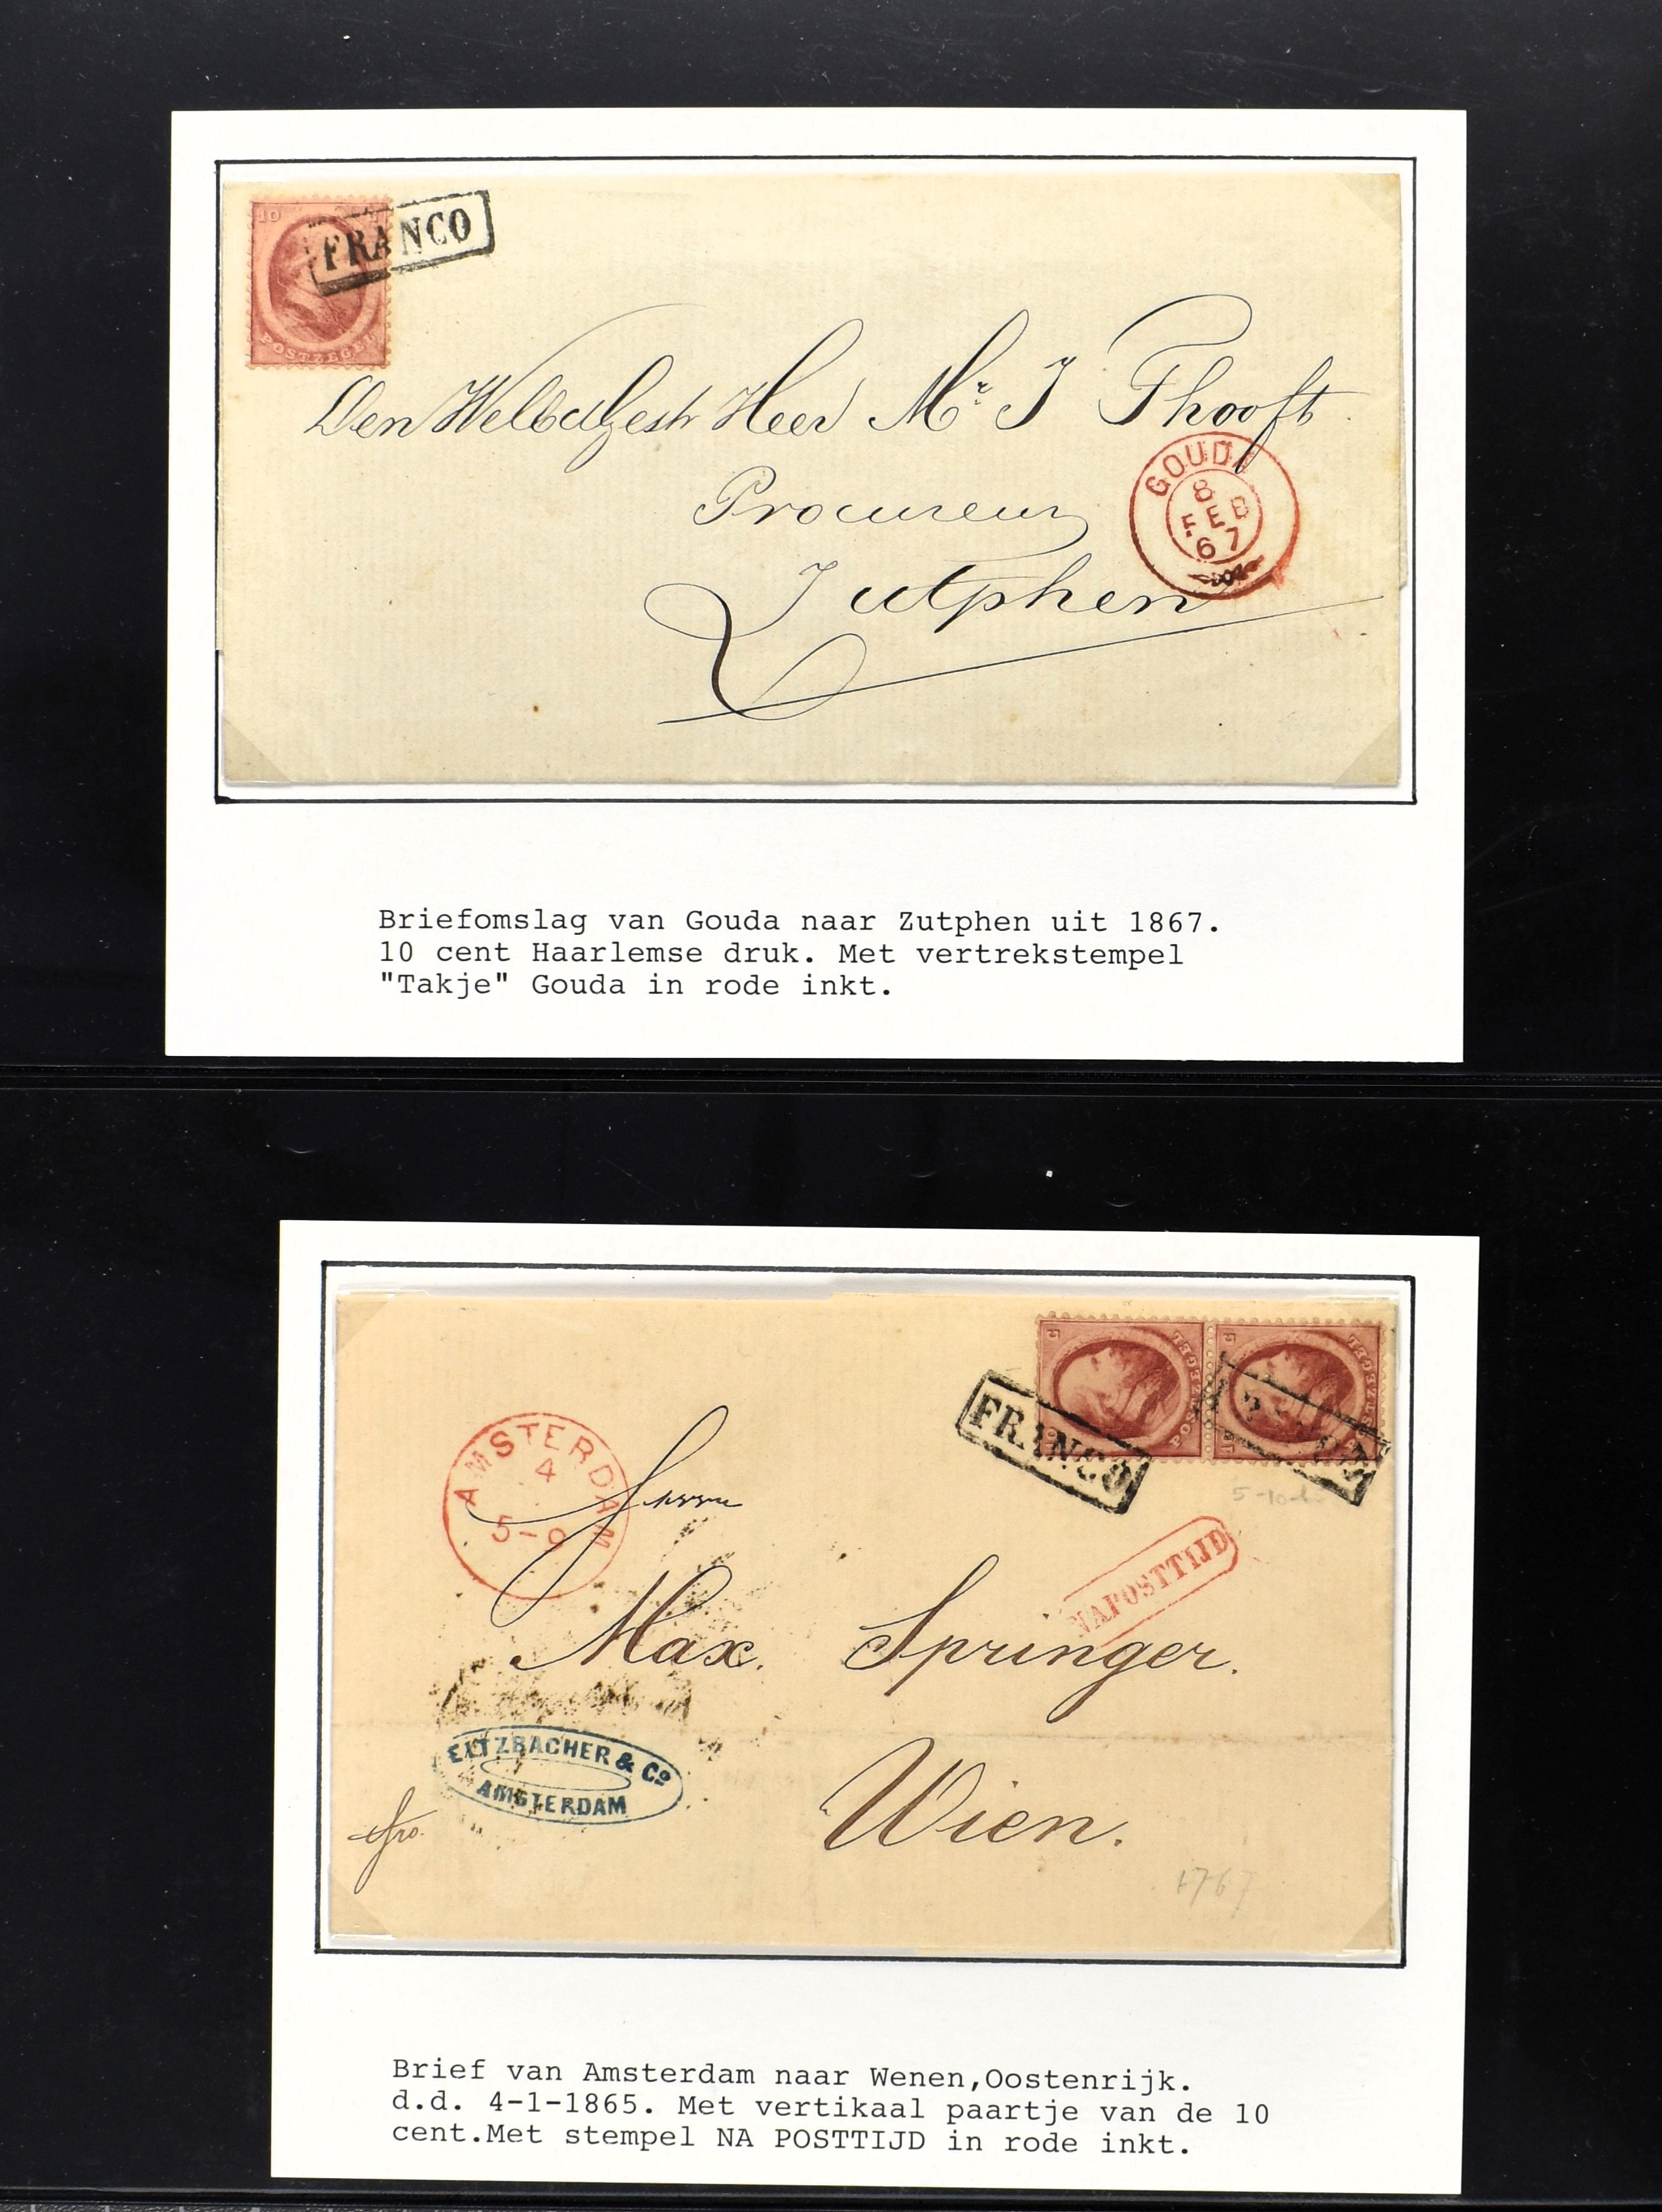 10
FRANCO
POSTZEGEL
Den WelEdlGestr Heer Mr. J Thooft
GOUDA
8
FEB
67
Procureur
Zutphen
Briefomslag van Gouda naar Zutphen uit 1867.
10 cent Haarlemse druk. Met vertrekstempel
"Takje" Gouda in rode inkt.
POSTZEGEL
POSTZEGEL
FRANCO
AMSTERDAM
4
5-9
Herrn
NA POSTTIJD
Max. Springer.
ELTZBACHER & Co
AMSTERDAM
fro.
Wien.
Brief van Amsterdam naar Wenen,Oostenrijk.
d.d. 4-1-1865. Met vertikaal paartje van de 10
cent.Met stempel NA POSTTIJD in rode inkt.